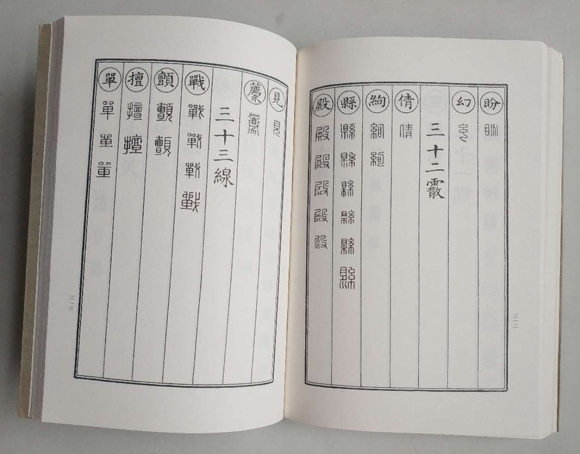 盼 盼
幻 幻
三十二霰
倩 倩
絢 絢 絢
縣 縣 縣 縣 縣 縣 縣
殿 殿 殿 殿 殿 殿
見 見
三十三線
戰 戰 戰 戰 戰
顫 顫 顫
擅 擅 擅
單 單 單 單